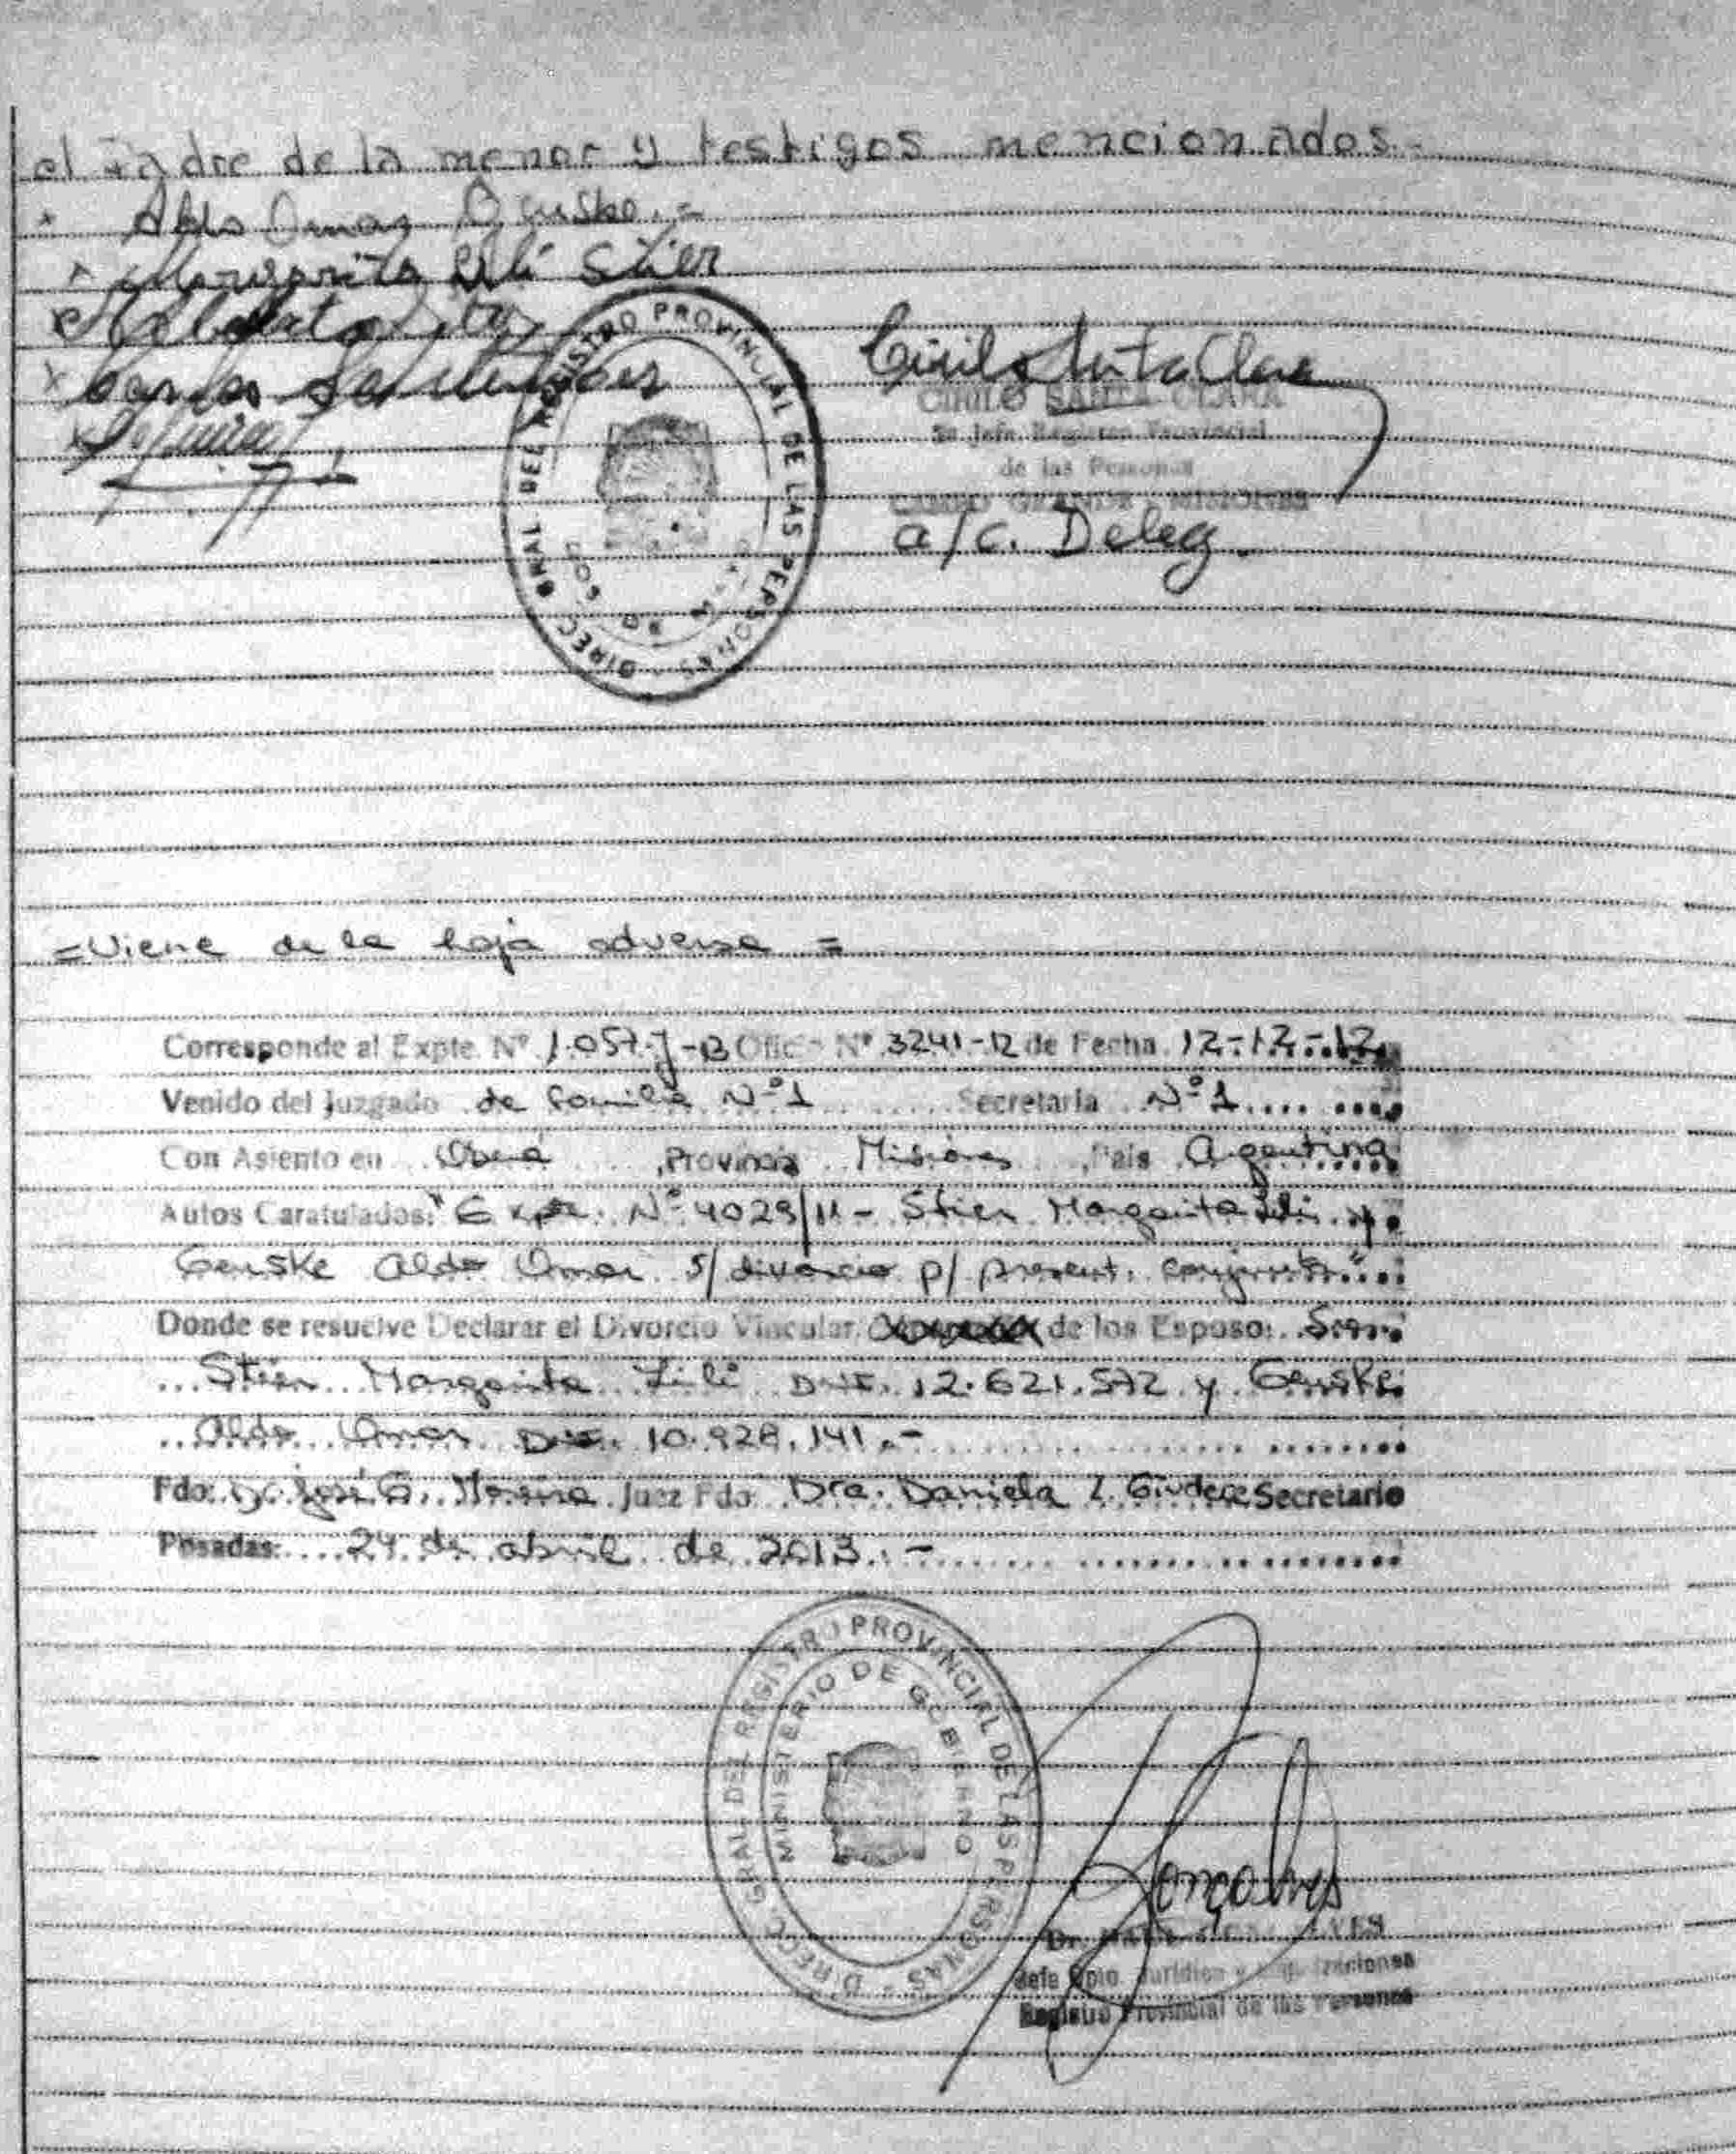 el Padre de la menor y testigos mencionados.-
Aldo Omar Genske.-
Margarita Lili Stier
Cirilo Santa Clara
CIRILO SANTA CLARA
Jefe Registro Provincial
de las Personas
CAMPO GRANDE - MISIONES
a/c. Deleg.
DIRECC. GRAL DEL REGISTRO PROVINCIAL DE LAS PERSONAS
=Viene de la hoja adversa=
Corresponde al Expte. Nº 1.057-J-13 Oficio Nº 3241-12 de Fecha 12-12-12
Venido del Juzgado de familia Nº 1 Secretaria Nº 1
Con Asiento en Oberá, Provincia Misiones, Pais Argentina
Autos Caratulados: "Expte. Nº 4029/11 - Stier Margarita Lili y
Genske Aldo Omar s/ divorcio p/ present. conjunta"
Donde se resuelve Declarar el Divorcio Vincular de los Esposos: Sres.
Stier Margarita Lili DNI. 12.621.572 y Genske
Aldo Omar DNI. 10.928.141.-
Fdo: Dr. José G. Moreira Juez Fdo. Dra. Daniela I. Giudece Secretario
Posadas: 24 de abril de 2013.-
DIRECC. GRAL. DEL REGISTRO PROVINCIAL DE LAS PERSONAS
MINISTERIO DE GOBIERNO
Gonçalves
Jefe Dpto. Jurídico y
Registro Provincial de las Personas